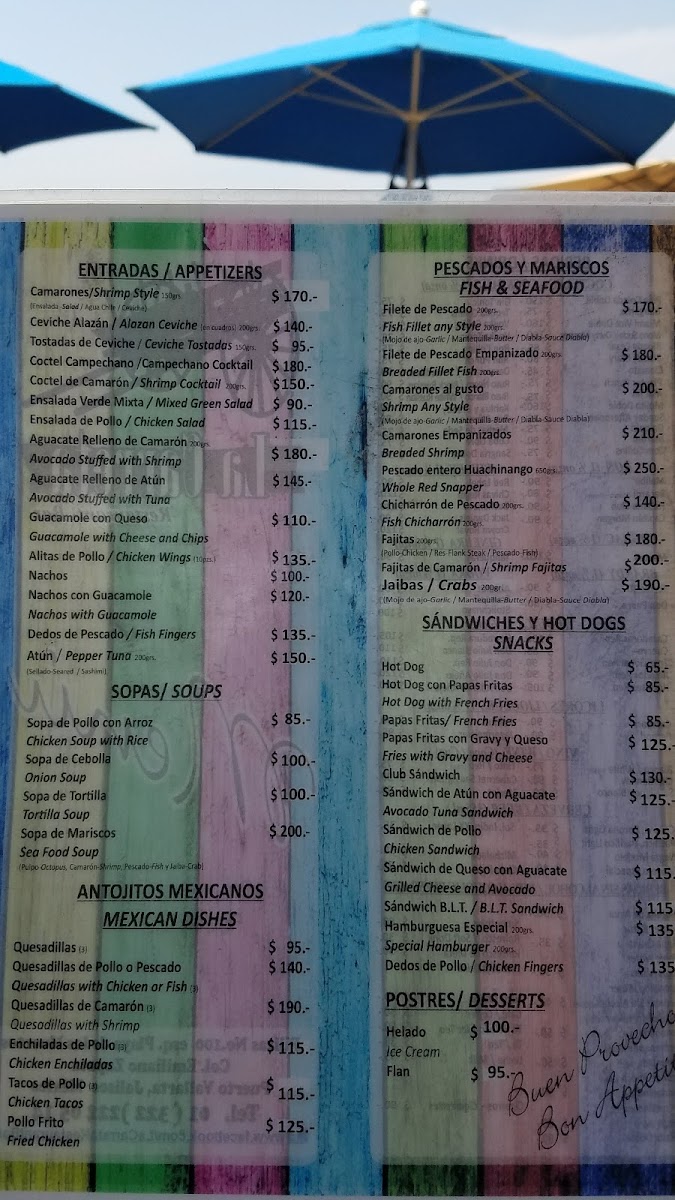 ENTRADAS / APPETIZERS
Camarones/Shrimp Style 150grs. $ 170.-
(Ensalada-Salad / Agua Chile / Ceviche)
Ceviche Alazán / Alazan Ceviche (en cuadros) 200grs. $ 140.-
Tostadas de Ceviche / Ceviche Tostadas 150grs. $ 95.-
Coctel Campechano /Campechano Cocktail $ 180.-
Coctel de Camarón / Shrimp Cocktail 200grs. $150.-
Ensalada Verde Mixta / Mixed Green Salad $ 90.-
Ensalada de Pollo / Chicken Salad $ 115.-
Aguacate Relleno de Camarón 200grs.
Avocado Stuffed with Shrimp $ 180.-
Aguacate Relleno de Atún $ 145.-
Avocado Stuffed with Tuna
Guacamole con Queso $ 110.-
Guacamole with Cheese and Chips
Alitas de Pollo / Chicken Wings (10pzs.) $ 135.-
Nachos $ 100.-
Nachos con Guacamole $ 120.-
Nachos with Guacamole
Dedos de Pescado / Fish Fingers $ 135.-
Atún / Pepper Tuna 200grs. $ 150.-
(Sellado-Seared / Sashimi)
SOPAS/ SOUPS
Sopa de Pollo con Arroz $ 85.-
Chicken Soup with Rice
Sopa de Cebolla $ 100.-
Onion Soup
Sopa de Tortilla $ 100.-
Tortilla Soup
Sopa de Mariscos $ 200.-
Sea Food Soup
(Pulpo-Octopus, Camarón-Shrimp, Pescado-Fish y Jaiba-Crab)
ANTOJITOS MEXICANOS
MEXICAN DISHES
Quesadillas (3) $ 95.-
Quesadillas de Pollo o Pescado $ 140.-
Quesadillas with Chicken or Fish (3)
Quesadillas de Camarón (3) $ 190.-
Quesadillas with Shrimp
Enchiladas de Pollo (3) $ 115.-
Chicken Enchiladas
Tacos de Pollo (3) $ 115.-
Chicken Tacos
Pollo Frito $ 125.-
Fried Chicken
PESCADOS Y MARISCOS
FISH & SEAFOOD
Filete de Pescado 200grs. $ 170.-
Fish Fillet any Style 200grs.
(Mojo de ajo-Garlic / Mantequilla-Butter / Diabla-Sauce Diabla)
Filete de Pescado Empanizado 200grs. $ 180.-
Breaded Fillet Fish 200grs.
Camarones al gusto $ 200.-
Shrimp Any Style
(Mojo de ajo-Garlic / Mantequilla-Butter / Diabla-Sauce Diabla)
Camarones Empanizados $ 210.-
Breaded Shrimp
Pescado entero Huachinango 650grs. $ 250.-
Whole Red Snapper
Chicharrón de Pescado 200grs. $ 140.-
Fish Chicharrón 200grs.
Fajitas 200grs. $ 180.-
(Pollo-Chicken / Res-Flank Steak / Pescado-Fish)
Fajitas de Camarón / Shrimp Fajitas $200.-
Jaibas / Crabs 200gr. $ 190.-
(Mojo de ajo-Garlic / Mantequilla-Butter / Diabla-Sauce Diabla)
SÁNDWICHES Y HOT DOGS
SNACKS
Hot Dog $ 65.-
Hot Dog con Papas Fritas $ 85.-
Hot Dog with French Fries
Papas Fritas/ French Fries $ 85.-
Papas Fritas con Gravy y Queso $ 125.-
Fries with Gravy and Cheese
Club Sándwich $ 130.-
Sándwich de Atún con Aguacate $ 125.-
Avocado Tuna Sandwich
Sándwich de Pollo $ 125.
Chicken Sandwich
Sándwich de Queso con Aguacate $ 115.
Grilled Cheese and Avocado
Sándwich B.L.T. / B.L.T. Sandwich $ 115
Hamburguesa Especial 200grs. $ 135
Special Hamburger 200grs.
Dedos de Pollo / Chicken Fingers $ 135
POSTRES/ DESSERTS
Helado $ 100.-
Ice Cream
Flan $ 95.-
Buen Provecho
Bon Appetit